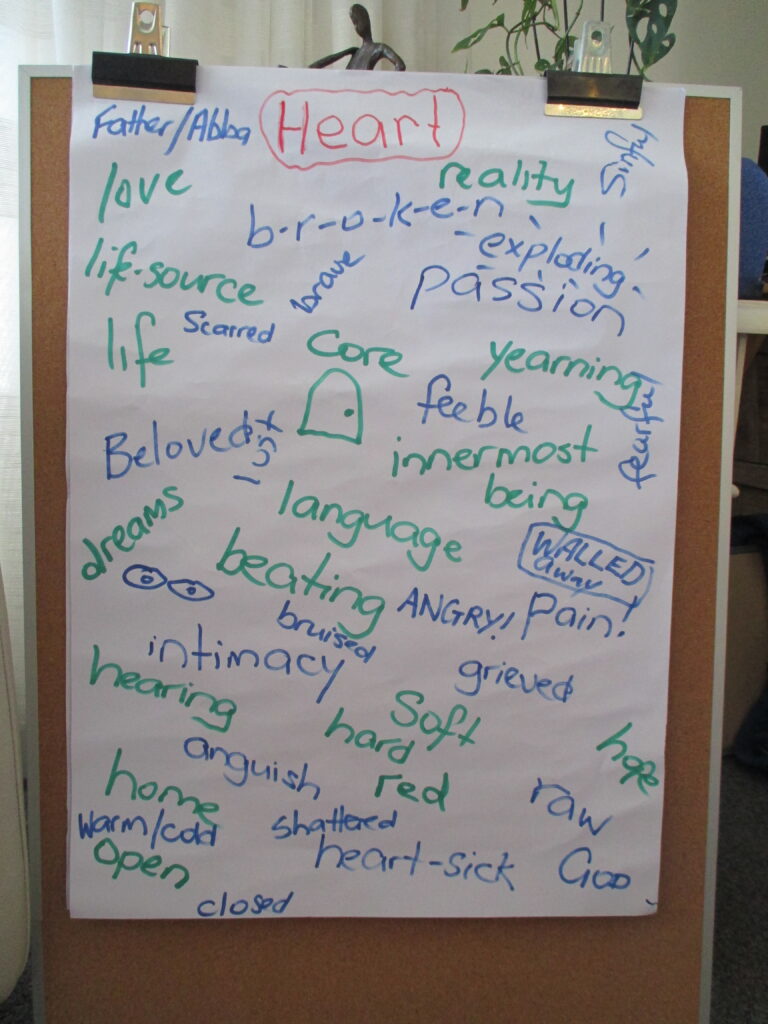 Father/Abba
Heart
sinful
love
reality
b-r-o-k-e-n
exploding
life-source
brave
passion
life
Scarred
Core
yearning
feeble
fearful
Beloved
innermost
being
language
dreams
WALLED
away
beating
ANGRY!
Pain!
bruised
intimacy
grieved
hearing
Soft
hard
hope
anguish
home
red
raw
warm/cold
shattered
open
heart-sick
GOD
closed